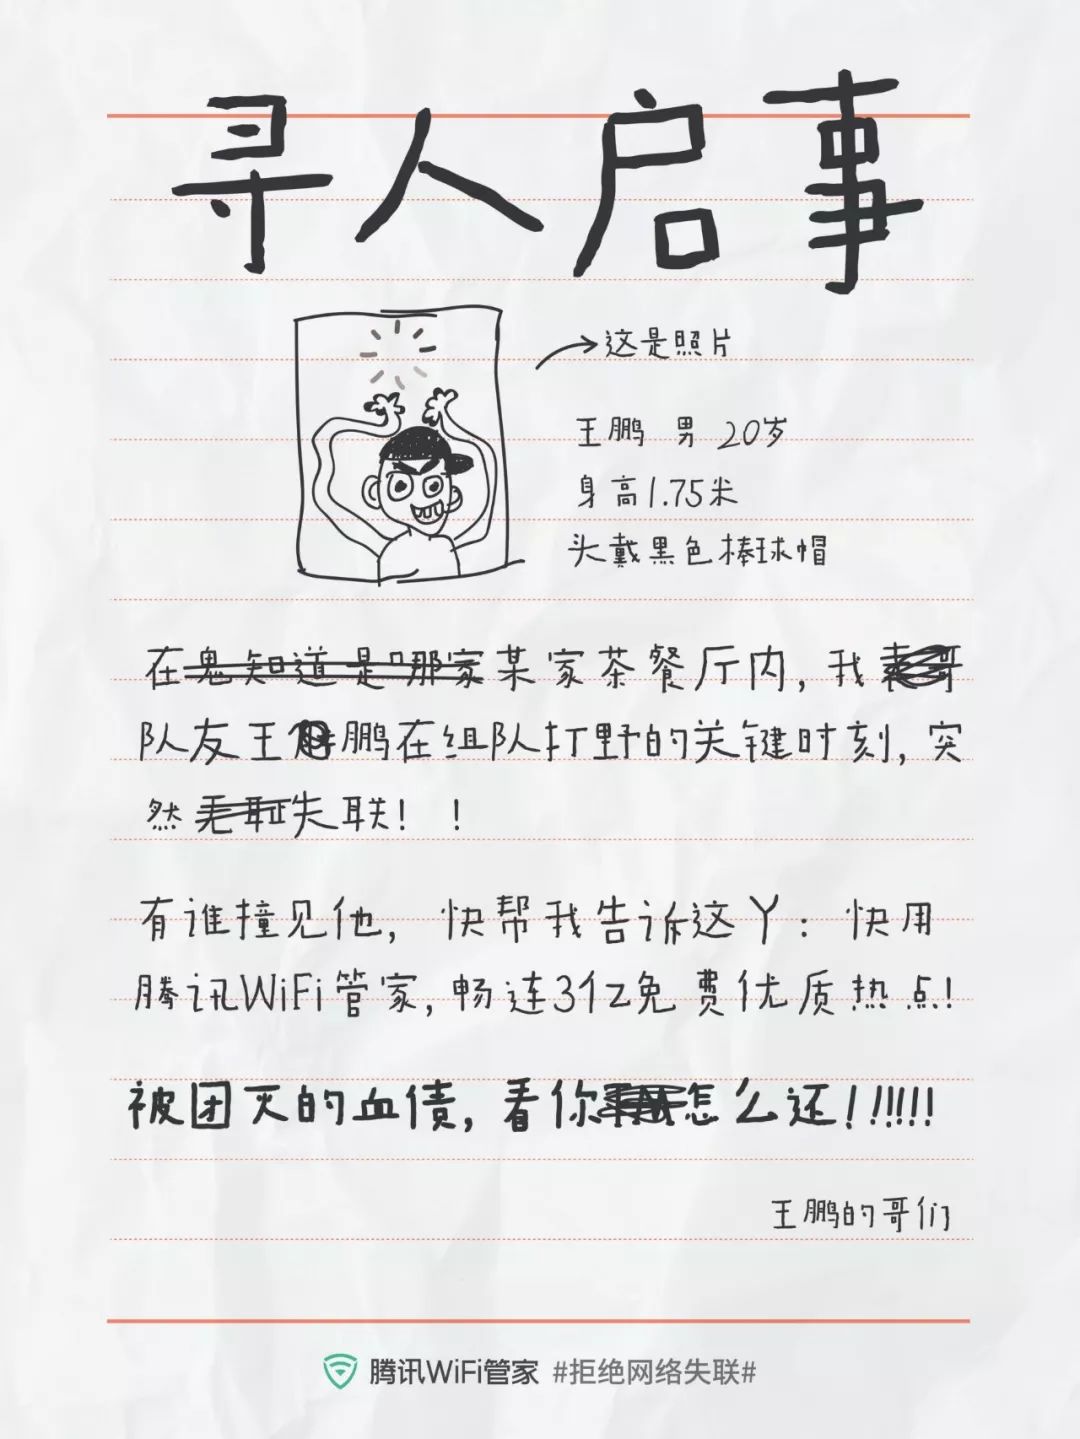 寻人启事
这是照片
王鹏 男 20岁
身高1.75米
头戴黑色棒球帽
在鬼知道是哪家某家茶餐厅内,我
队友王鹏在组队打野的关键时刻,突
然无耻失联!!
有谁撞见他,快帮我告诉这丫:快用
腾讯WiFi管家,畅连3亿免费优质热点!
被团灭的血债,看你怎么还!!!!!!
王鹏的哥们
腾讯WiFi管家 #拒绝网络失联#